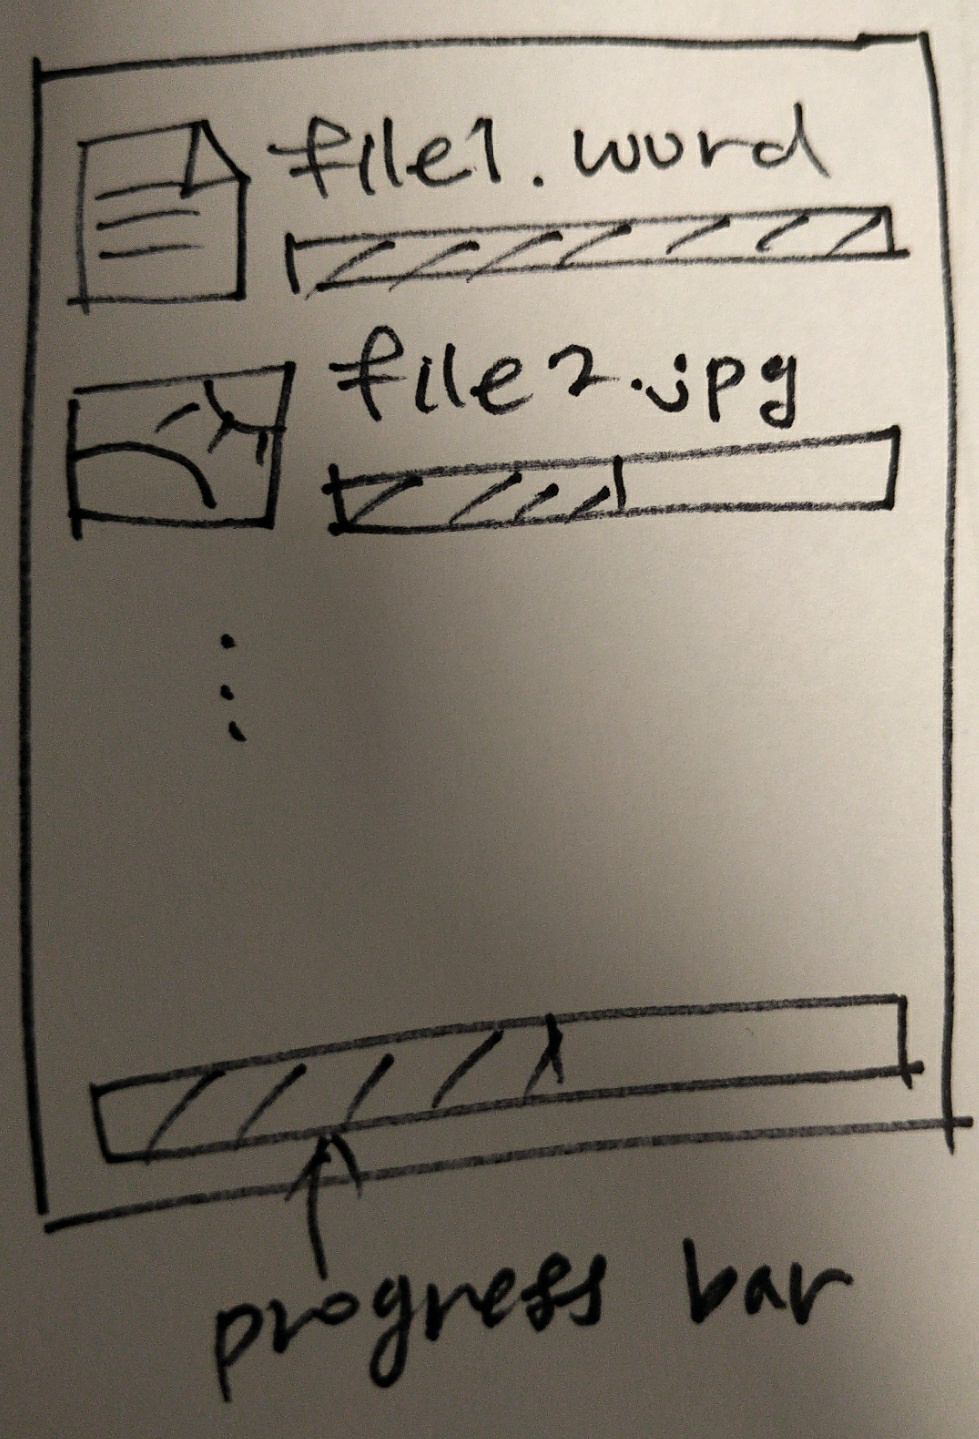 file1.word
file2.jpg
progress bar